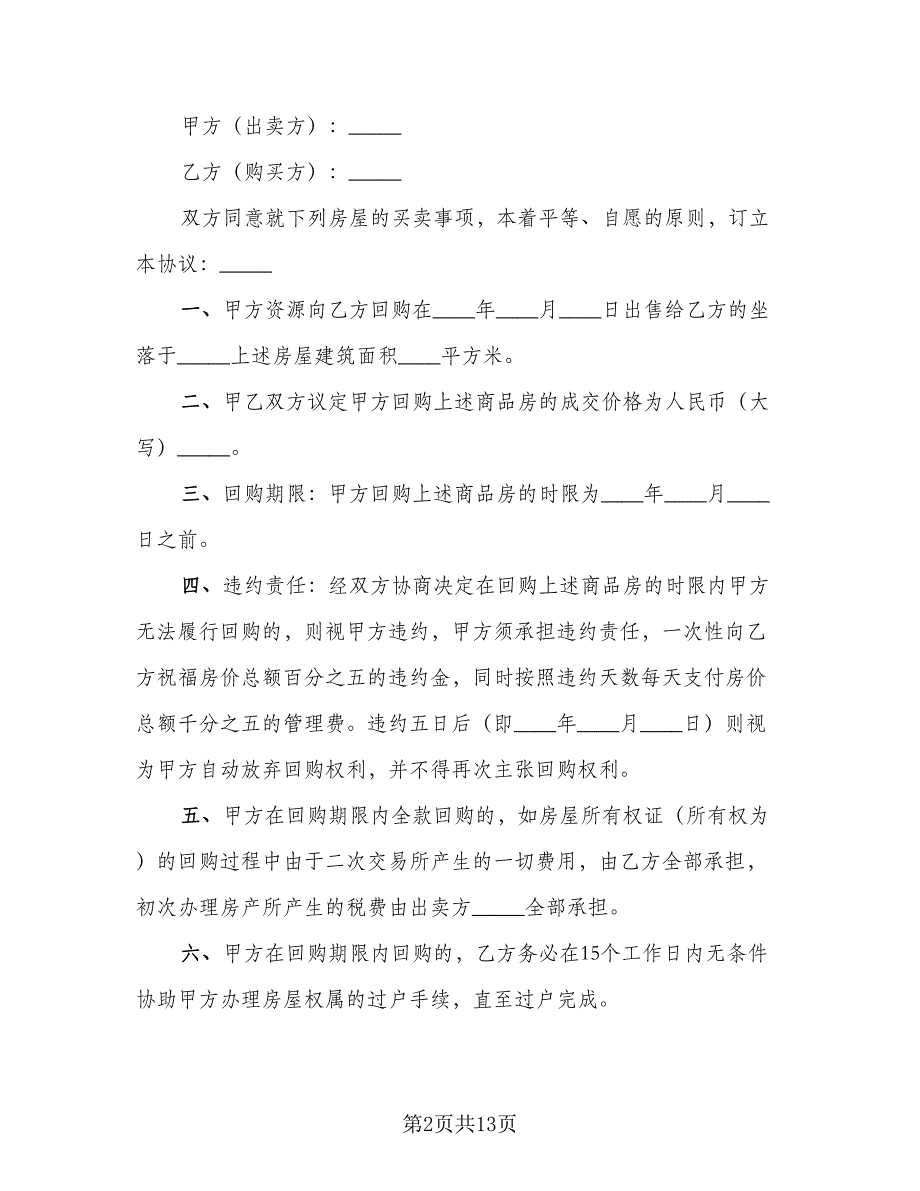 甲方（出卖方）：_____
乙方（购买方）：_____
双方同意就下列房屋的买卖事项，本着平等、自愿的原则，订立
本协议：_____
一、甲方资源向乙方回购在____年____月____日出售给乙方的坐
落于_____上述房屋建筑面积____平方米。
二、甲乙双方议定甲方回购上述商品房的成交价格为人民币（大
写）_____。
三、回购期限：甲方回购上述商品房的时限为____年____月____
日之前。
四、违约责任：经双方协商决定在回购上述商品房的时限内甲方
无法履行回购的，则视甲方违约，甲方须承担违约责任，一次性向乙
方祝福房价总额百分之五的违约金，同时按照违约天数每天支付房价
总额千分之五的管理费。违约五日后（即____年____月____日）则视
为甲方自动放弃回购权利，并不得再次主张回购权利。
五、甲方在回购期限内全款回购的，如房屋所有权证（所有权为
）的回购过程中由于二次交易所产生的一切费用，由乙方全部承担，
初次办理房产所产生的税费由出卖方_____全部承担。
六、甲方在回购期限内回购的，乙方务必在15个工作日内无条件
协助甲方办理房屋权属的过户手续，直至过户完成。
第2页共13页